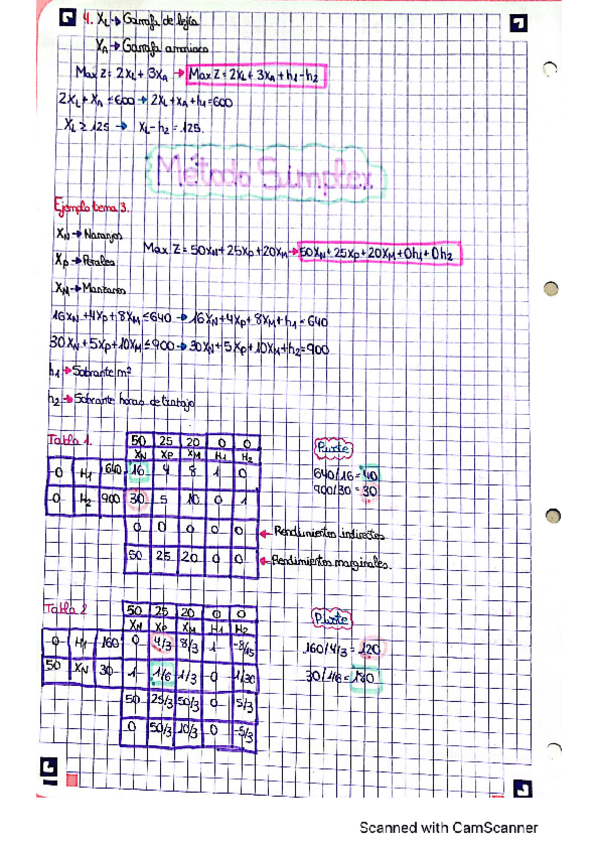 4. XL → Garrafa de lejía
XA → Garrafa amoniaco
Max Z = 2XL + 3XA → Max Z = 2XL + 3XA + h1 - h2
2XL + XA ≤ 600 → 2XL + XA + h1 = 600
XL ≥ 125 → XL - h2 = 125.
Método Simplex
Ejemplo tema 3.
XN → Naranjos
Max Z = 50XN + 25XP + 20XM → 50XN + 25XP + 20XM + 0h1 + 0h2
XP → Perales
XM → Manzanos
16XN + 4XP + 8XM ≤ 640 → 16XN + 4XP + 8XM + h1 = 640
30XN + 5XP + 10XM ≤ 900 → 30XN + 5XP + 10XM + h2 = 900
h1 → Sobrante m²
h2 → Sobrante horas de trabajo
Tabla 1.
50 25 20 0 0
XN XP XM H1 H2
0 H1 640 16 4 8 1 0
0 H2 900 30 5 10 0 1
0 0 0 0 0 ← Rendimientos indirectos
50 25 20 0 0 ← Rendimientos marginales.
Pivote
640/16 = 40
900/30 = 30
Tabla 2
50 25 20 0 0
XN XP XM H1 H2
0 H1 160 0 4/3 8/3 1 -8/15
50 XN 30 1 1/6 1/3 0 1/30
50 25/3 50/3 0 5/3
0 50/3 10/3 0 -5/3
Pivote
160/4/3 = 120
30/1/6 = 180
Scanned with CamScanner